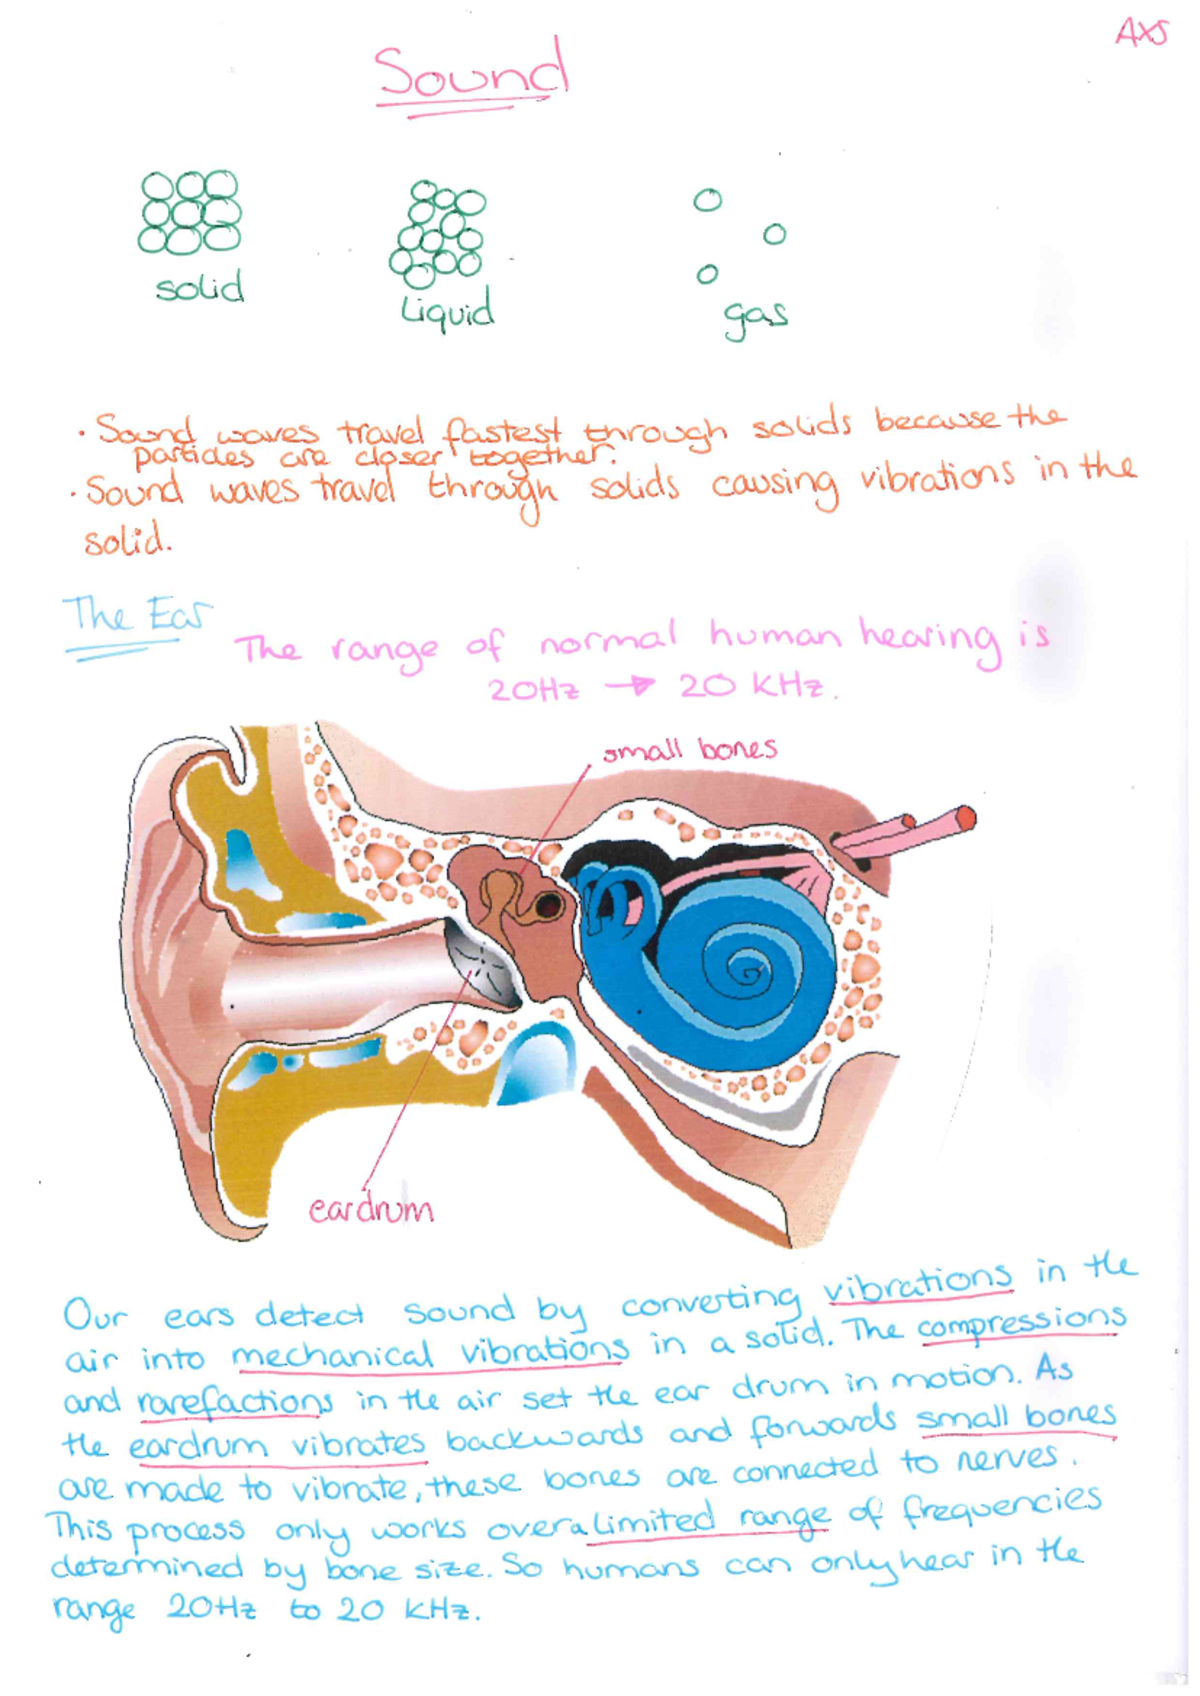 AXS
Sound
solid
Liquid
gas
• Sound waves travel fastest through solids because the
particles are closer together.
• Sound waves travel through solids causing vibrations in the
solid.
The Ear
The range of normal human hearing is
20Hz → 20 KHz.
small bones
eardrum
Our ears detect sound by converting vibrations in the
air into mechanical vibrations in a solid. The compressions
and rarefactions in the air set the ear drum in motion. As
the eardrum vibrates backwards and forwards small bones
are made to vibrate, these bones are connected to nerves.
This process only works over a limited range of frequencies
determined by bone size. So humans can only hear in the
range 20Hz to 20 KHz.